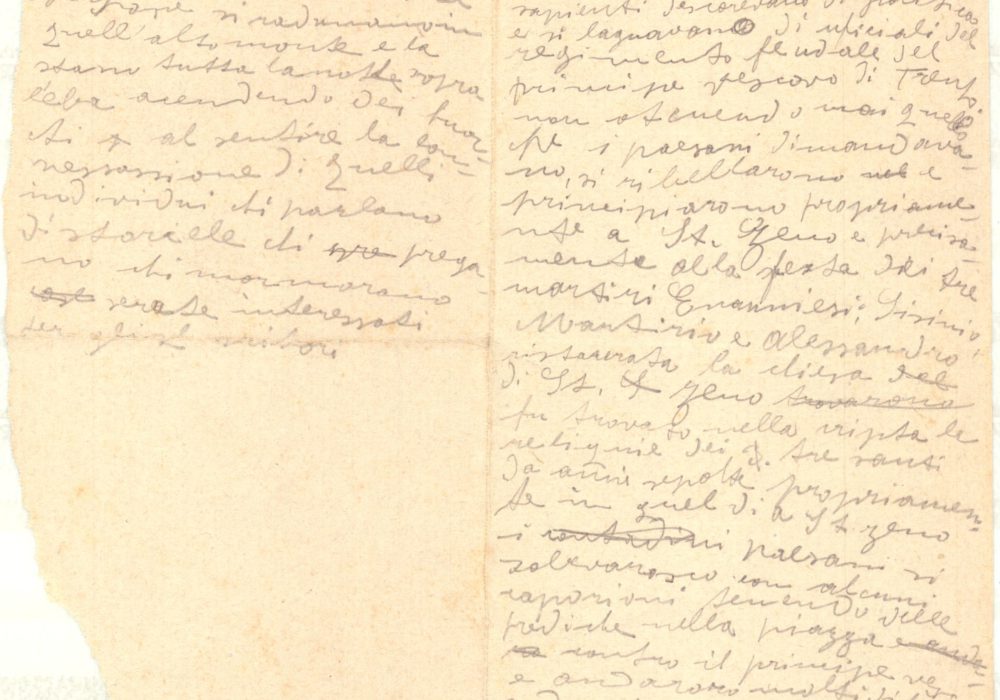 si radunano in
quell'alto monte e la
stano tutta la notte sopra
l'eba acendendo dei fuor-
ti al sentire la con-
nessassione di quelli
individui chi parlano
di storielle chi pre prega-
no chi mormorano
serate interessati
per
sapienti
e si lagnavano di uficiali del
regimento feudale del
principe vescovo di Trento.
non otenendo mai quello
che i paesani dimandava-
no, si ribellarono nel e
principiarono propriame-
nte a St. Zeno e precisa-
mente alla festa dei tre
martiri Enanniesi; Sisinio,
Martirio e Alessandro
ristaurata la chiesa del
di St. Zeno trovarono
fu trovato nella cripta le
reliquie dei tre santi
da anni sepolte. propriamen-
te in quel di a St. Zeno
i contadini paesani si
solevarono con alcuni
caporioni tenendo delle
prediche nella piazza e anda-
contro il principe ves-
e andarono molti